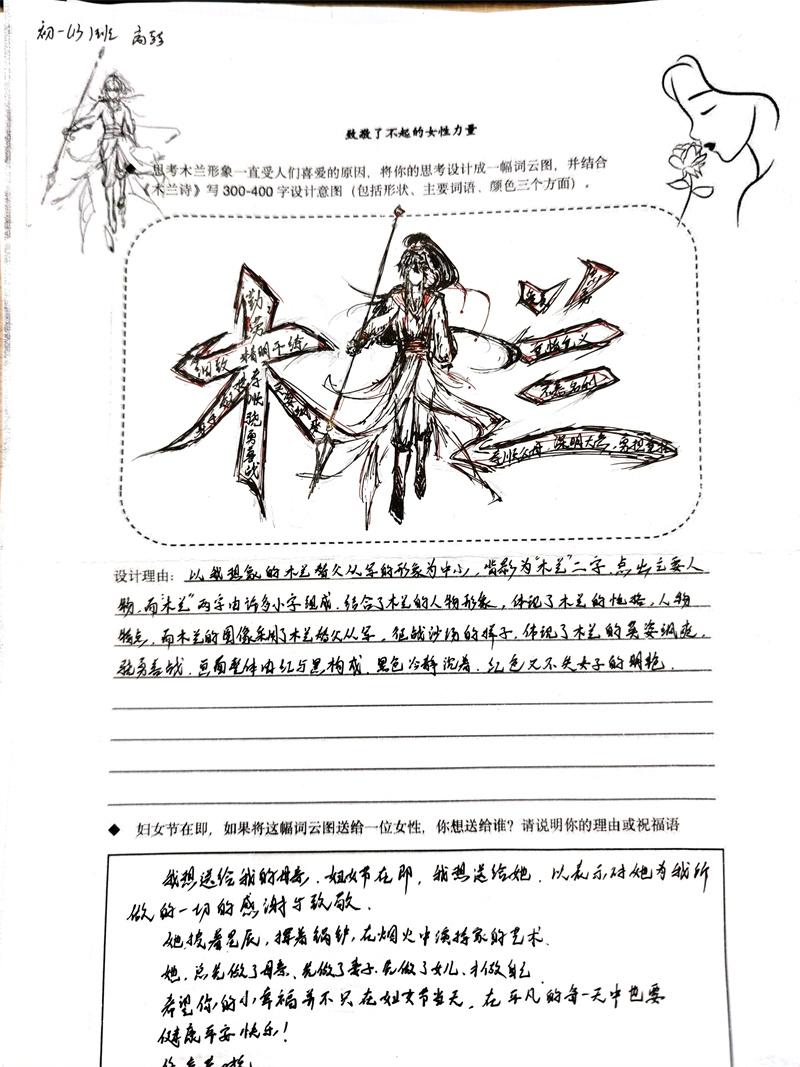 初一(3)班 高
致敬了不起的女性力量
◆ 思考木兰形象一直受人们喜爱的原因，将你的思考设计成一幅词云图，并结合
《木兰诗》写300-400字设计意图（包括形状、主要词语、颜色三个方面）。
木兰
勤劳
细致 精明干练
孝顺
骁勇善战
不慕名利
孝顺父母、深明大义、
设计理由：以我想象的木兰替父从军的形象为中心，背影为“木兰”二字，点出主要人
物，而“木兰”两字由许多小字组成，结合了木兰的人物形象，体现了木兰的性格，人物
特点，而木兰的图像采用了木兰替父从军，征战沙场的样子，体现了木兰的英姿飒爽，
骁勇善战，画面整体由红与黑构成，黑色冷静沉着，红色又不失女子的明艳。
◆ 妇女节在即，如果将这幅词云图送给一位女性，你想送给谁？请说明你的理由或祝福语
我想送给我的母亲，妇女节在即，我想送给她，以表示对她为我所
做的一切的感谢与致敬。
她披着星辰，挥着锅铲，在烟火中演择家的艺术
她，总先做了母亲，先做了妻子，先做了女儿，才做自己
希望你的小幸福并不只在妇女节当天，在平凡的每一天中也要
健康平安快乐！